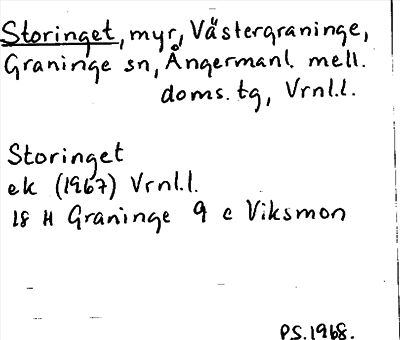 Storinget, myr, Västergraninge,
Graninge sn, Ångermanl. mell.
doms. tg, Vrnl.l.
Storinget
ek (1967) Vrnl.l.
18 H Graninge 9 c Viksmon
P.S. 1968.